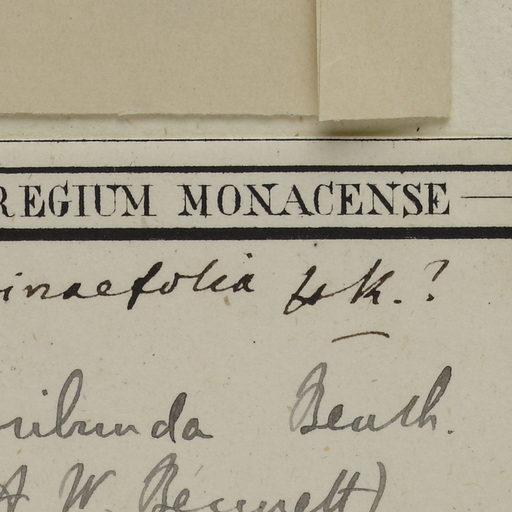 REGIUM MONACENSE
inaefolia Lk.?
ribunda Benth.
A W. Bennett)